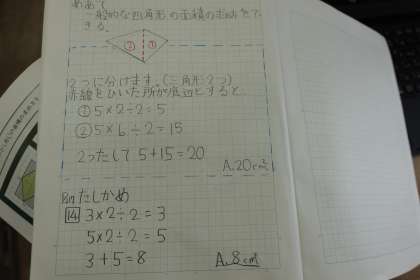 めあて
一般的な四角形の面積の求め方を
きる。
② ①
2つに分けます。(三角形2つ)
赤線をひいた所が底辺とすると、
①5×2÷2=5
②5×6÷2=15
2つたして 5+15=20
A.20cm²
たしかめ
14 3×2÷2=3
5×2÷2=5
3+5=8
A.8cm²